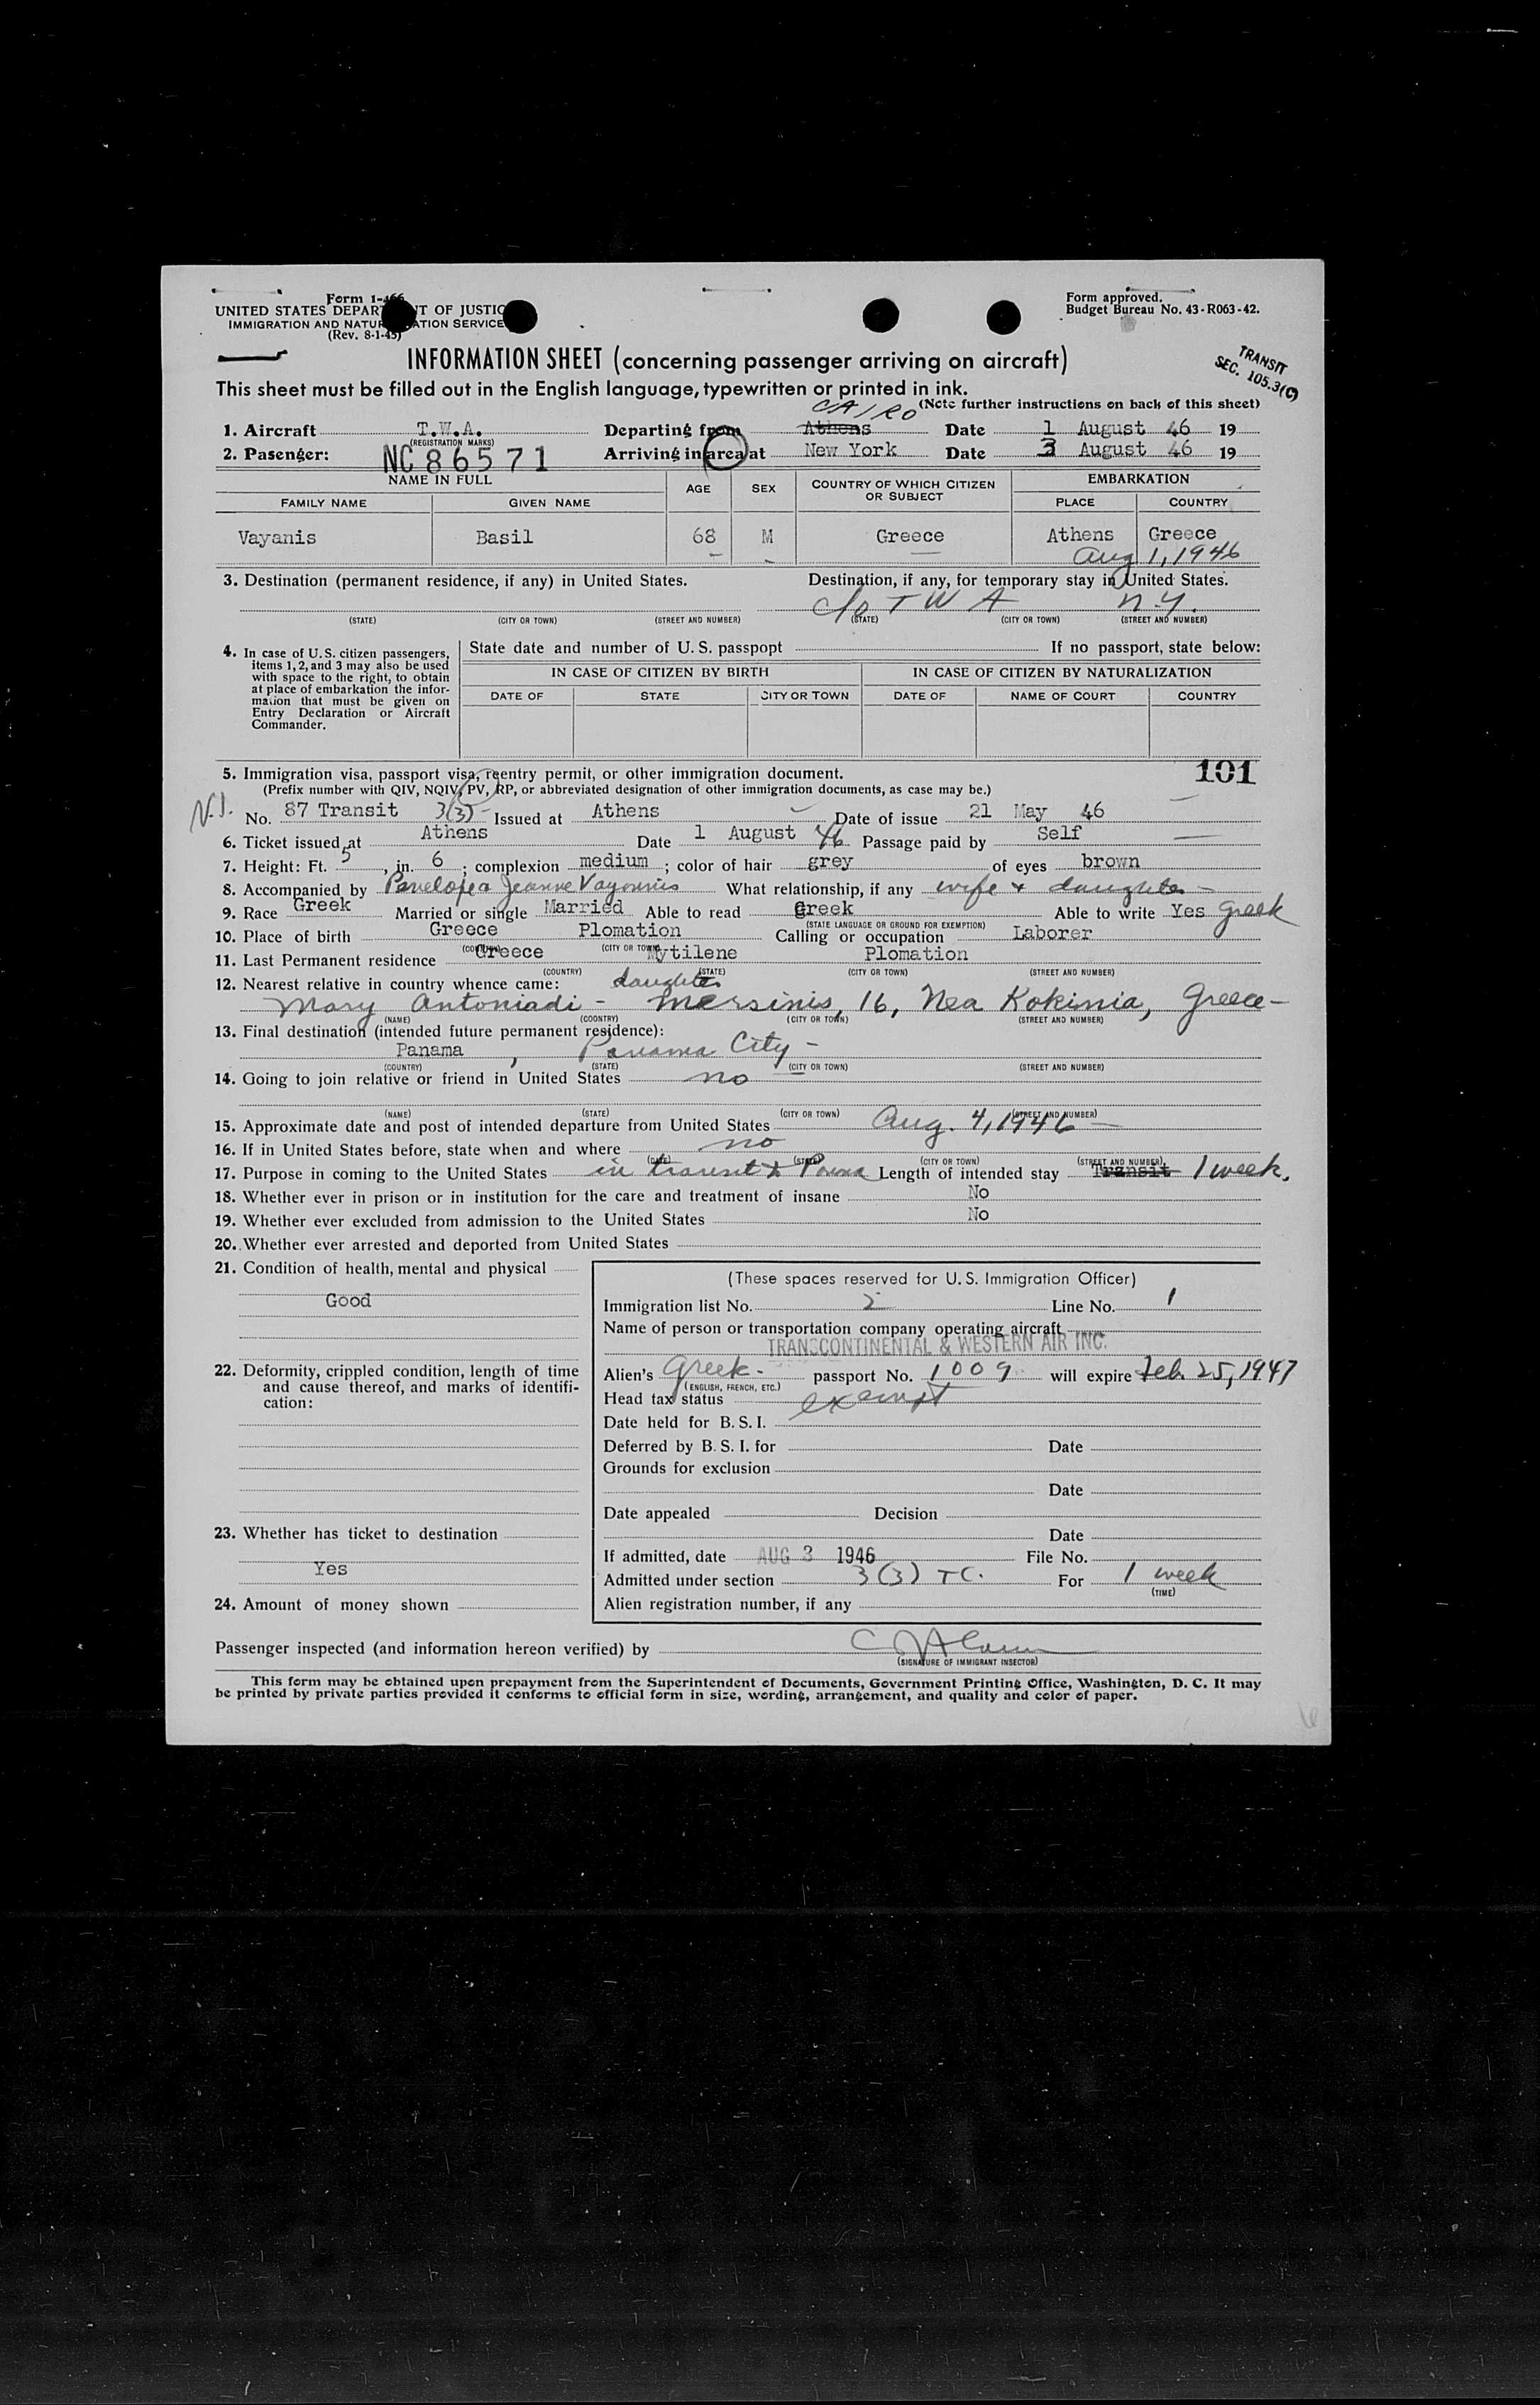 Form 1-466
UNITED STATES DEPAR T OF JUSTIC
IMMIGRATION AND NATUR ATION SERVICE
(Rev. 8-1-45)
Form approved.
Budget Bureau No. 43-R063-42.
INFORMATION SHEET (concerning passenger arriving on aircraft)
TRANSIT
SEC. 105.3(C)
This sheet must be filled out in the English language, typewritten or printed in ink.
(Note further instructions on back of this sheet)
CAIRO
1. Aircraft T.W.A. Departing from Athens Date 1 August 46 19
(REGISTRATION MARKS)
2. Pasenger: NC86571 Arriving in area at New York Date 3 August 46 19
NAME IN FULL AGE SEX COUNTRY OF WHICH CITIZEN OR SUBJECT EMBARKATION
FAMILY NAME GIVEN NAME PLACE COUNTRY
Vayanis Basil 68 M Greece Athens Greece
Aug 1, 1946
3. Destination (permanent residence, if any) in United States. Destination, if any, for temporary stay in United States.
c/o TWA N.Y.
(STATE) (CITY OR TOWN) (STREET AND NUMBER) (STATE) (CITY OR TOWN) (STREET AND NUMBER)
4. In case of U.S. citizen passengers, items 1, 2, and 3 may also be used with space to the right, to obtain at place of embarkation the information that must be given on Entry Declaration or Aircraft Commander.
State date and number of U. S. passpopt If no passport, state below:
IN CASE OF CITIZEN BY BIRTH IN CASE OF CITIZEN BY NATURALIZATION
DATE OF STATE CITY OR TOWN DATE OF NAME OF COURT COUNTRY
5. Immigration visa, passport visa, reentry permit, or other immigration document. 101
(Prefix number with QIV, NQIV, PV, RP, or abbreviated designation of other immigration documents, as case may be.)
N.I. No. 87 Transit 3(3) Issued at Athens Date of issue 21 May 46
6. Ticket issued at Athens Date 1 August 46 Passage paid by Self
7. Height: Ft. 5, in. 6; complexion medium; color of hair grey of eyes brown
8. Accompanied by Penelopea Jeanne Vayannis What relationship, if any wife & daughter -
9. Race Greek Married or single Married Able to read Greek Able to write Yes Greek
(STATE LANGUAGE OR GROUND FOR EXEMPTION)
10. Place of birth Greece Plomation Calling or occupation Laborer
(COUNTRY) (CITY OR TOWN)
11. Last Permanent residence Greece Mytilene Plomation
(COUNTRY) (STATE) (CITY OR TOWN) (STREET AND NUMBER)
12. Nearest relative in country whence came: daughter
Mary Antoniadi - Mersinis, 16, Nea Kokinia, Greece -
(NAME) (COONTRY) (CITY OR TOWN) (STREET AND NUMBER)
13. Final destination (intended future permanent residence):
Panama, Panama City -
(COUNTRY) (STATE) (CITY OR TOWN) (STREET AND NUMBER)
14. Going to join relative or friend in United States no
(NAME) (STATE) (CITY OR TOWN) (STREET AND NUMBER)
15. Approximate date and post of intended departure from United States Aug. 4, 1946 -
16. If in United States before, state when and where no
(DATE) (STATE) (CITY OR TOWN) (STREET AND NUMBER)
17. Purpose in coming to the United States in transit to Length of intended stay Transit 1 week.
18. Whether ever in prison or in institution for the care and treatment of insane No
19. Whether ever excluded from admission to the United States No
20. Whether ever arrested and deported from United States
21. Condition of health, mental and physical
Good
22. Deformity, crippled condition, length of time and cause thereof, and marks of identification:
23. Whether has ticket to destination
Yes
24. Amount of money shown
(These spaces reserved for U. S. Immigration Officer)
Immigration list No. 2 Line No. 1
Name of person or transportation company operating aircraft
TRANSCONTINENTAL & WESTERN AIR INC.
Alien's Greek - passport No. 1009 will expire Feb. 25, 1947
(ENGLISH, FRENCH, ETC.)
Head tax status exempt
Date held for B. S. I.
Deferred by B. S. I. for Date
Grounds for exclusion
Date
Date appealed Decision
Date
If admitted, date AUG 3 1946 File No.
Admitted under section 3(3) TC. For 1 week
(TIME)
Alien registration number, if any
Passenger inspected (and information hereon verified) by
(SIGNATURE OF IMMIGRANT INSECTOR)
This form may be obtained upon prepayment from the Superintendent of Documents, Government Printing Office, Washington, D. C. It may
be printed by private parties provided it conforms to official form in size, wording, arrangement, and quality and color of paper.